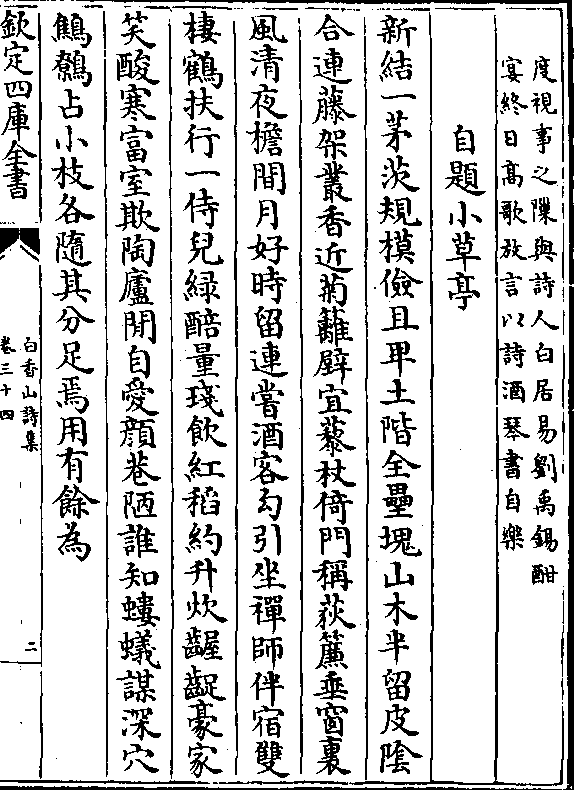 度視事之隙與詩人白居易劉禹錫酣
宴終日高歌放言以詩酒琴書自樂
自題小草亭
新結一茅茨規模儉且卑土階全壘塊山木半留皮陰
合連藤架叢香近菊籬壁宜藜杖倚門稱荻簾垂窗裏
風清夜檐間月好時留連嘗酒客勾引坐禪師伴宿雙
棲鶴扶行一侍兒緑醅量琖飲紅稻約升炊齷齪豪家
笑酸寒富室欺陶廬閒自愛顔巷陋誰知螻蟻謀深穴
鷦鷯占小枝各隨其分足焉用有餘為
欽定四庫全書
白香山詩集
卷三十四
二